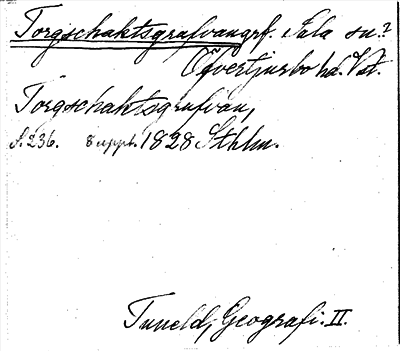 Torgschaktsgrufvan grf. Sala sn.?
Öfvertjurbo hd. Vstm.
Torgschaktsgrufvan,
S. 236. 8 uppl. 1828 Sthlm.
Tuneld, Geografi. II.